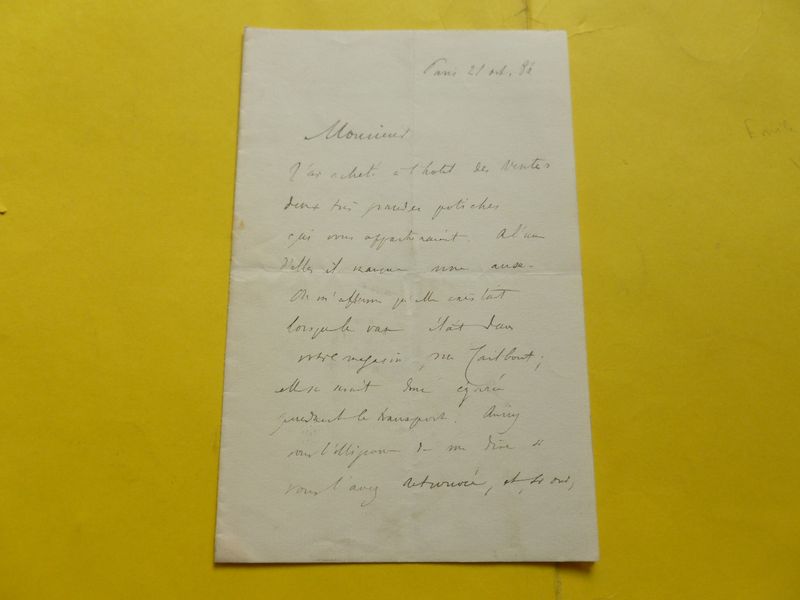 Paris 21 oct. 82
Monsieur
J'ai acheté à l'hotel des Ventes
deux très grandes potiches
qui vous appartenaient. A l'une
d'elles il manque une anse.
On m'affirme qu'elle existait
lorsque le vase était dans
votre magasin, rue Taitbout;
elle se serait donc égarée
pendant le transport. Auriez
vous l'obligeance de me dire si
vous l'avez retrouvée, et, si oui,